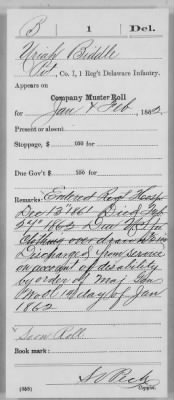 B 1 Del.
Uriah Biddle
Pvt, Co. I, 1 Reg't Delaware Infantry.
Appears on
Company Muster Roll
for Jan & Feb, 1862.
Present or absent
Stoppage, $ 100 for
Due Gov't $ 100 for
Remarks: Entered Regt Hosp
Dec 13" 1861 Died Feb
24" 1862 Due U.S. for
Clothing overdrawn
Discharged from service
on account of disability
by order of Maj Gen
Wool 19 day of Jan
1862
Roll
Book mark:
(358) Copyist.